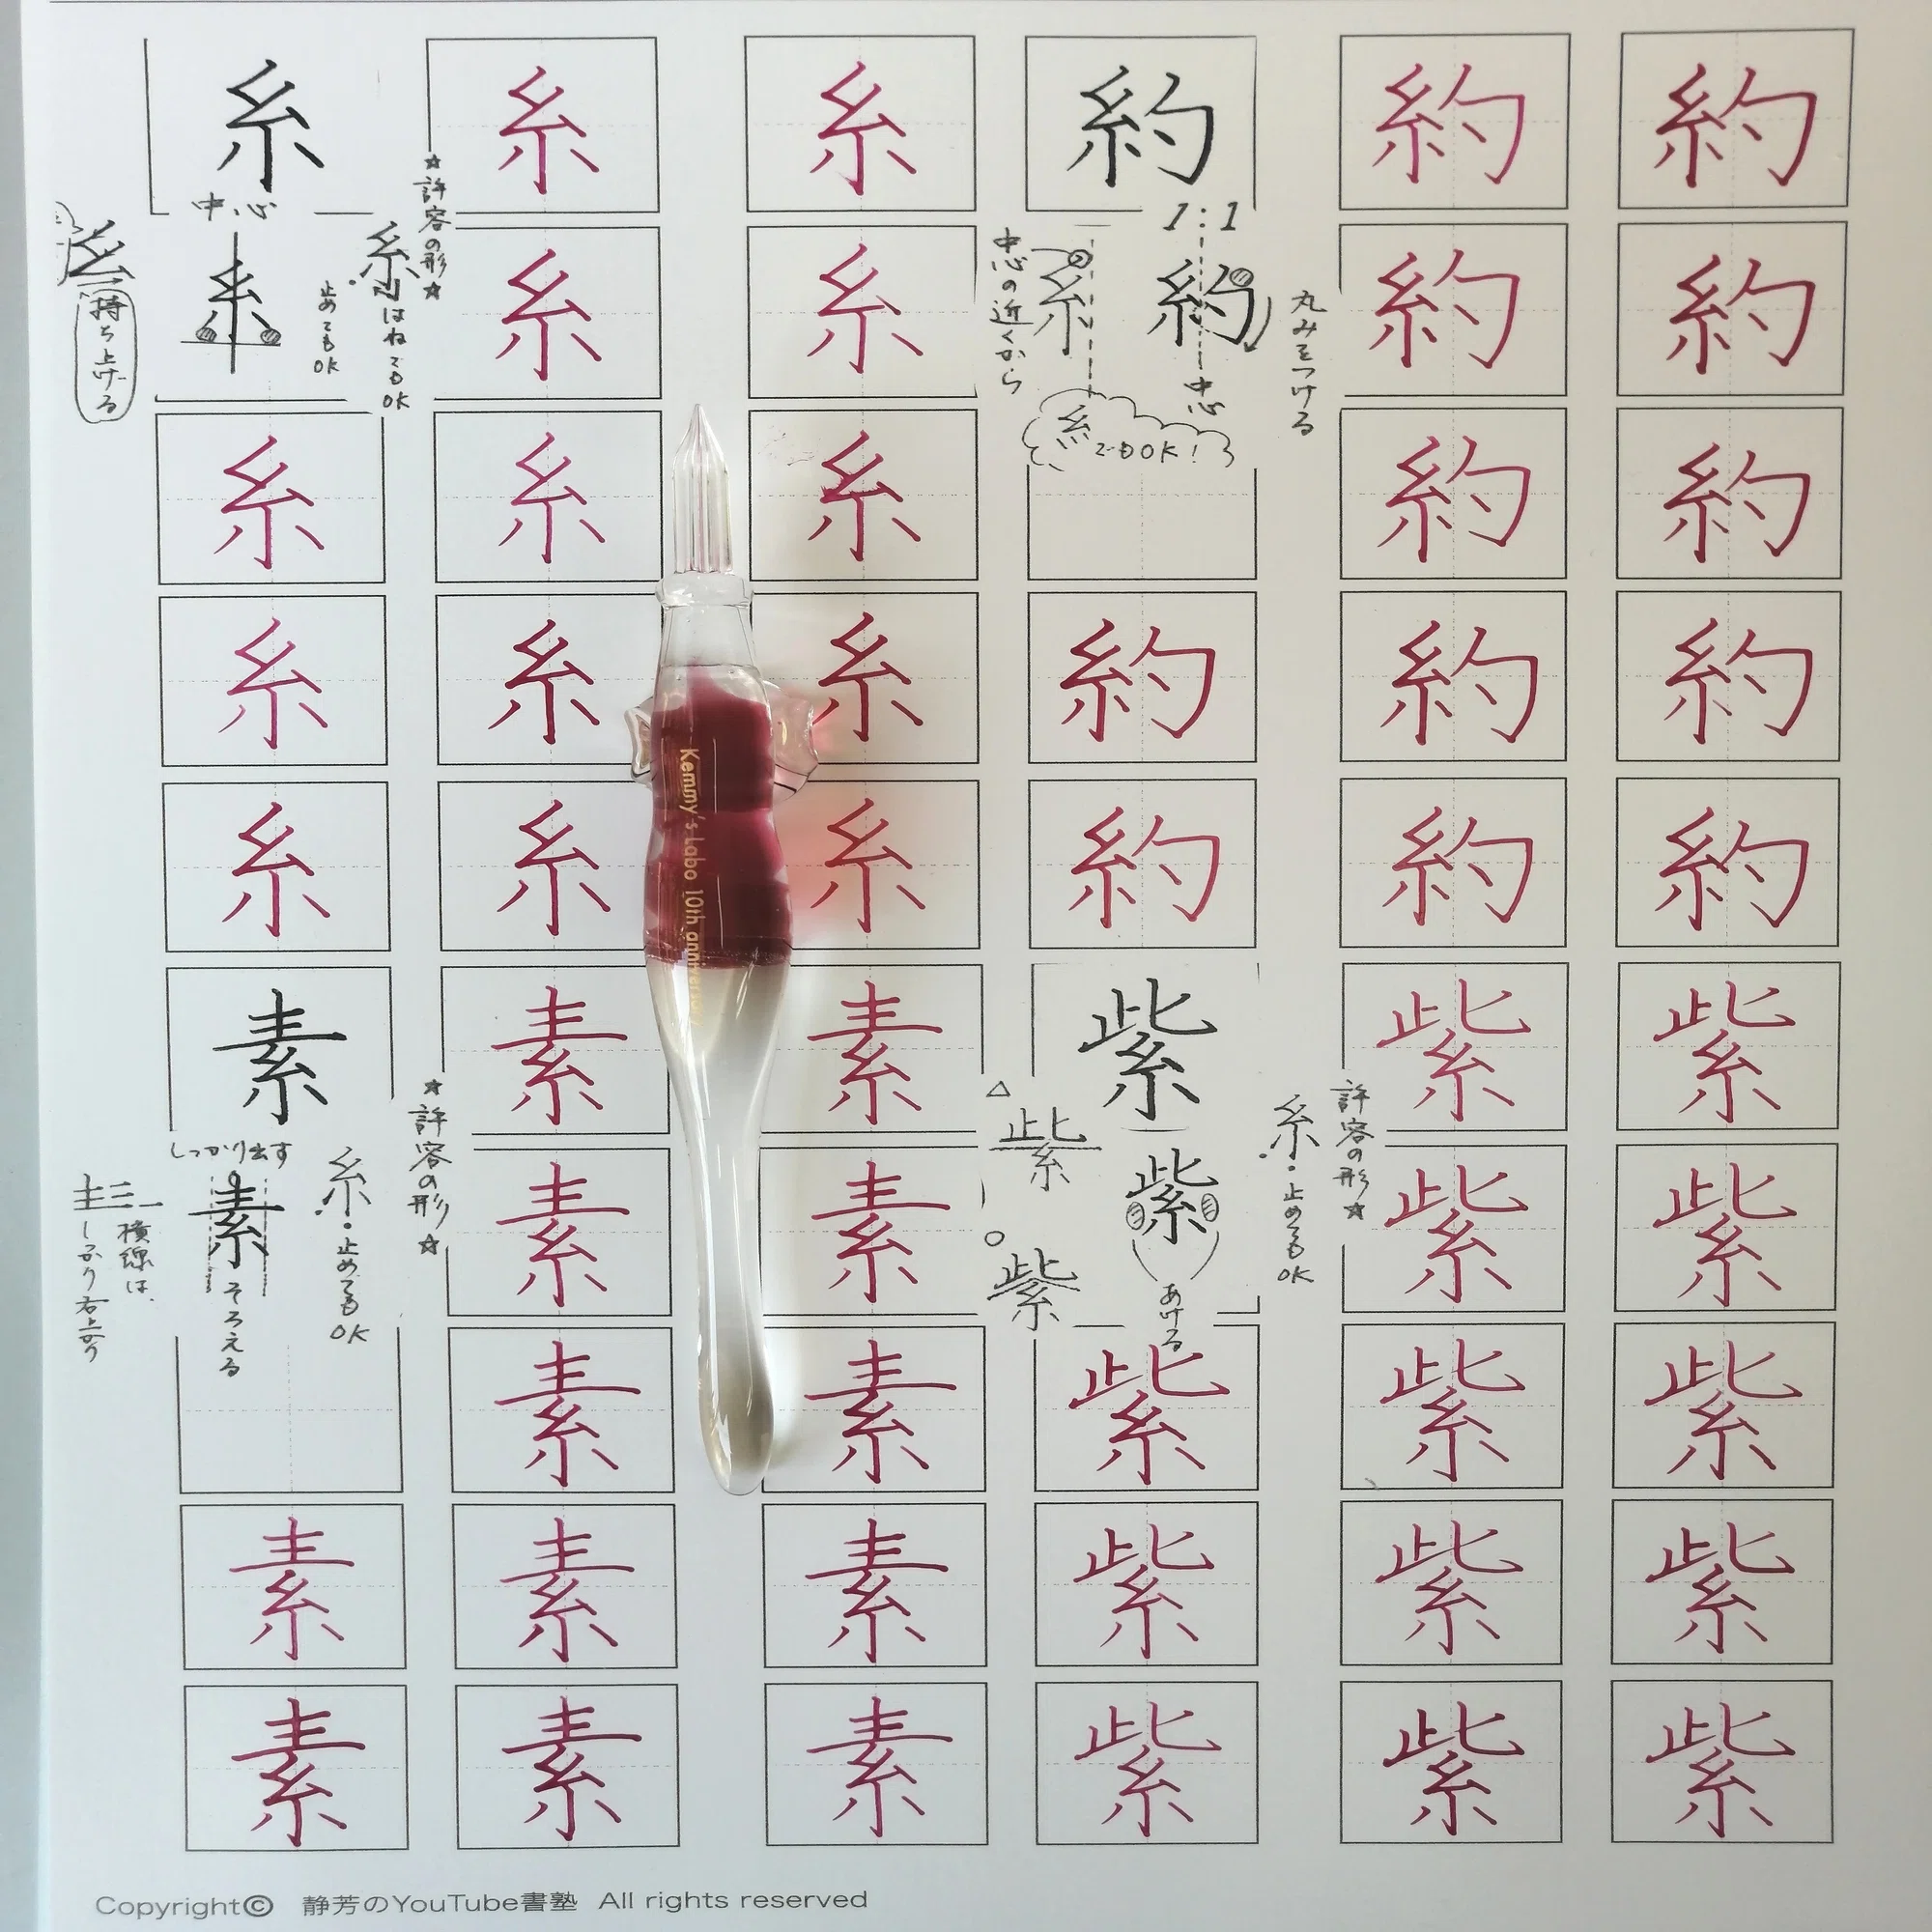 糸 糸 糸 約 約 約
中心
持ち上げる
糸
止めてもOK
糸
はねてもOK
★許容の形★
糸 糸
中心の近くから
糸
1:1
約
中心
丸みをつける
糸でもOK!
約 約
糸 糸 糸 約 約
糸 糸 糸 約 約 約
糸 糸 糸 約 約 約
素 素 素 紫 紫 紫
しっかり出す
素
そろえる
横線は、
しっかり右上がり
糸
止めてもOK
★許容の形★
素 素
△
紫
○
紫
紫
あける
糸
止めてもOK
許容の形★
紫 紫
素 素 紫 紫 紫
素 素 素 紫 紫 紫
素 素 素 紫 紫 紫
Kemmy's Labo 10th anniversary
Copyright© 静芳のYouTube書塾 All rights reserved